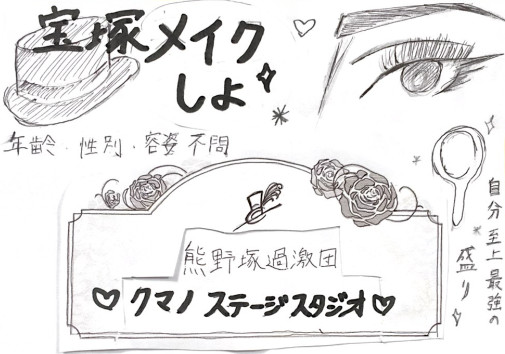 宝塚メイク
しよ
年齢・性別・容姿不問
自分至上最強の
盛り
熊野塚過激団
♡クマノステージスタジオ♡